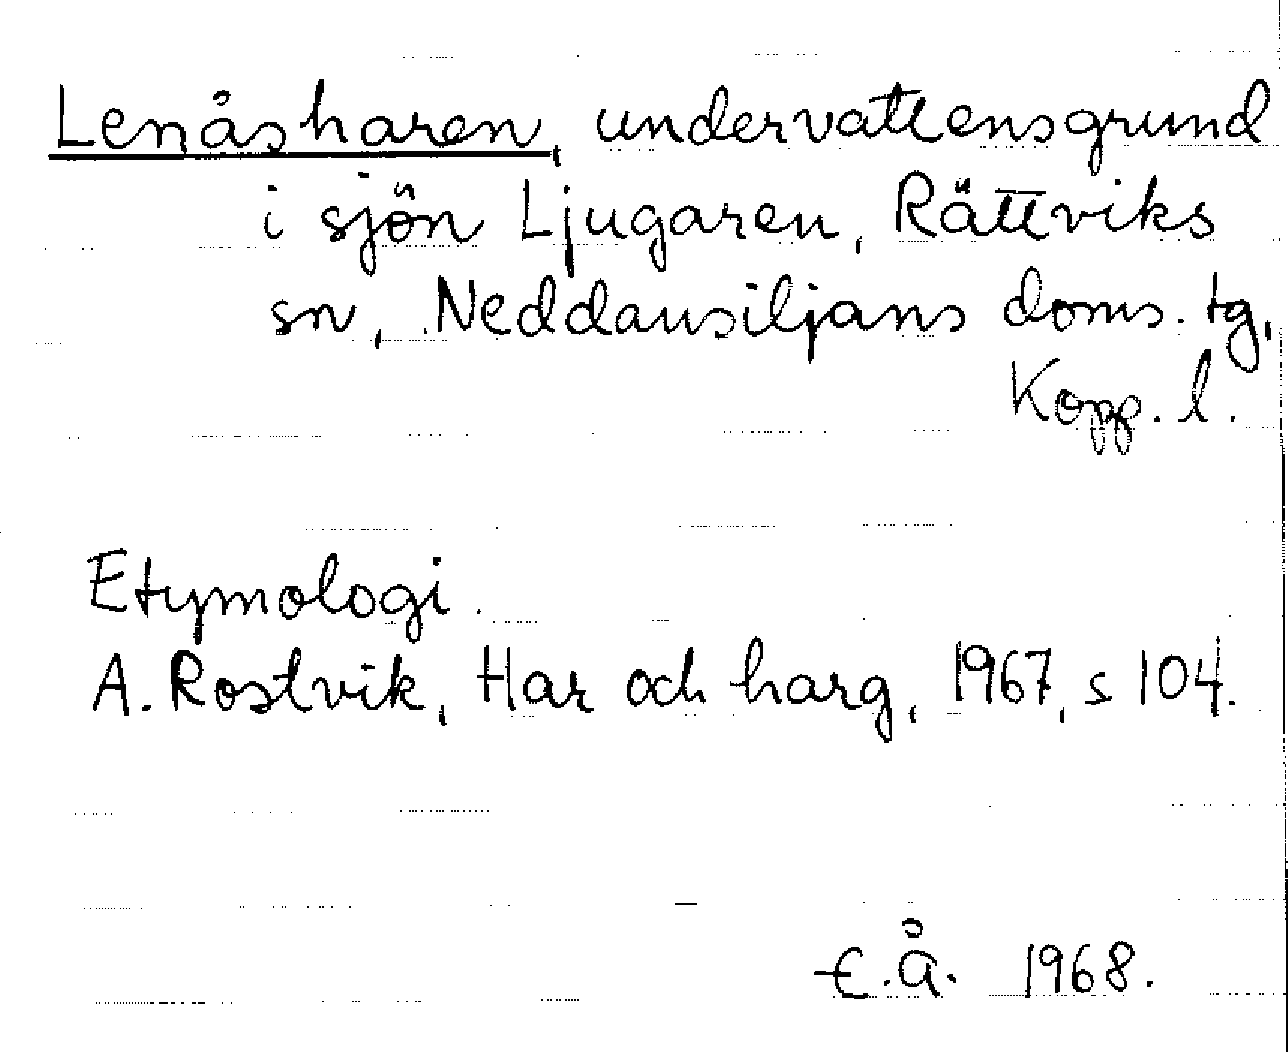 Lenåsharen, undervattensgrund
i sjön Ljugaren, Rättviks
sn, Neddansiljans doms. tg,
Kopp. l.
Etymologi.
A. Rostvik, Har och harg, 1967, s 104.
E.Å. 1968.